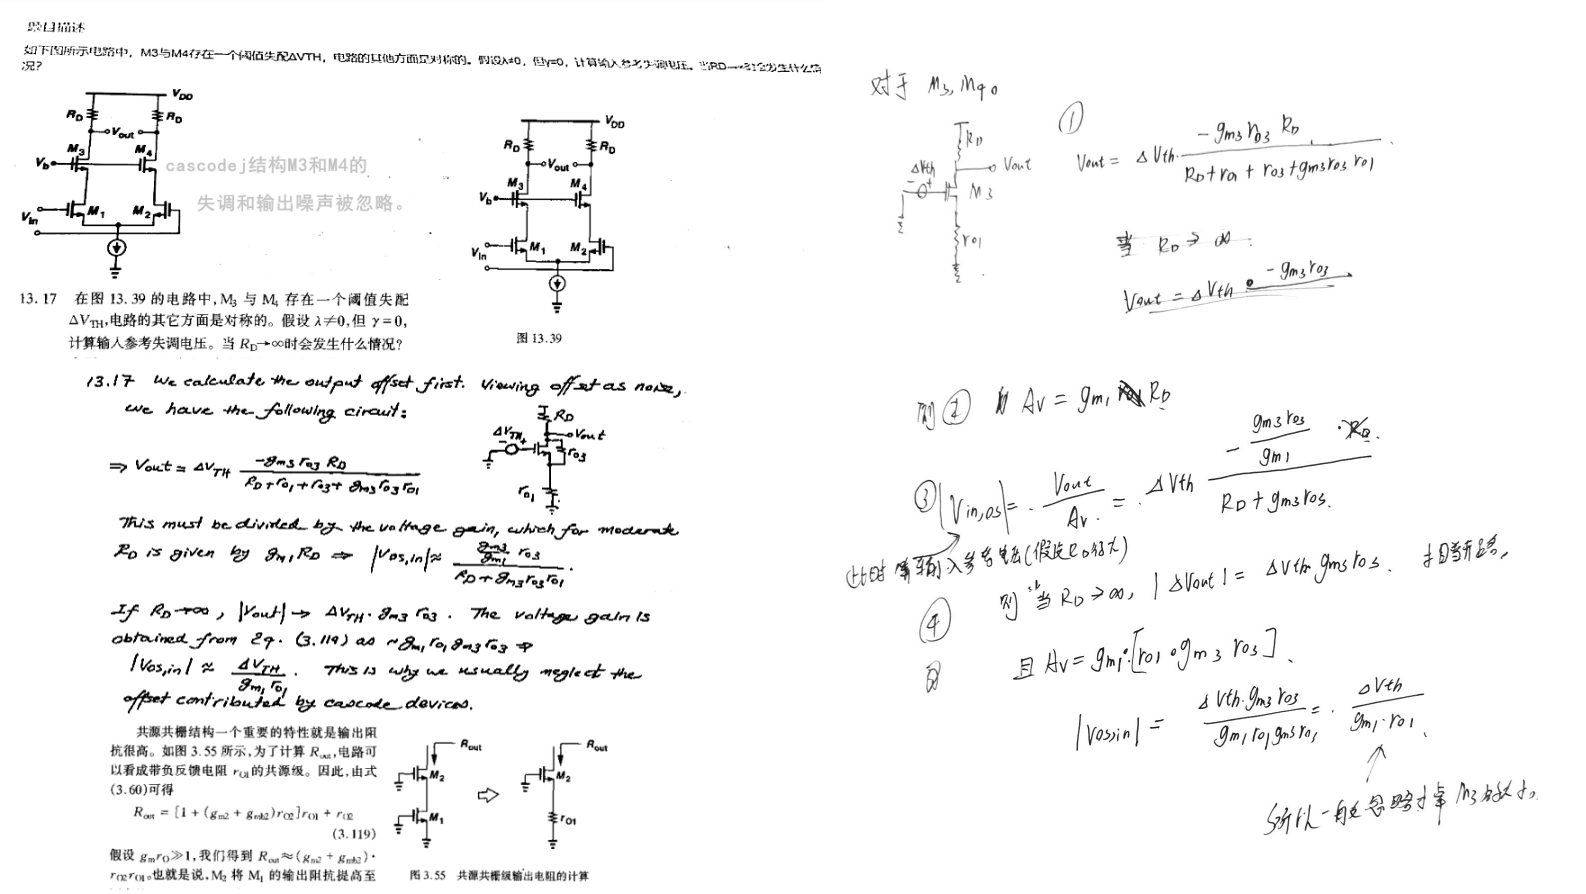 题目描述
如下图所示电路中，M3与M4存在一个阈值失配ΔVTH，电路的其他方面是对称的。假设λ≠0，但γ=0，计算输入参考失调电压。当RD→∞时会发生什么情
况？
VDD
RD
RD
Vout
M3
M4
Vb
M1
M2
Vin
cascodej结构M3和M4的
失调和输出噪声被忽略。
VDD
RD
RD
Vout
M3
M4
Vb
M1
M2
Vin
图 13.39
13.17 在图 13.39 的电路中,M3 与 M4 存在一个阈值失配
ΔVTH,电路的其它方面是对称的。假设 λ≠0,但 γ=0,
计算输入参考失调电压。当 RD→∞时会发生什么情况?
13.17 We calculate the output offset first. Viewing offset as noise,
we have the following circuit:
RD
ΔVTH
Vout
ro3
ro1
⇒ Vout = ΔVTH (-gm3 ro3 RD) / (RD+ro1+ro3+gm3ro3ro1)
This must be divided by the voltage gain, which for moderate
RD is given by gm1RD ⇒ |Vos,in| ≈ (gm3/gm1 · ro3) / (RD+gm3ro3ro1) .
If RD→∞, |Vout| → ΔVTH·gm3 ro3. The voltage gain is
obtained from Eq. (3.119) as ~gm1ro1gm3ro3 ⇒
|Vos,in| ≈ ΔVTH / (gm1ro1) . This is why we usually neglect the
offset contributed by cascode devices.
共源共栅结构一个重要的特性就是输出阻
抗很高。如图 3.55 所示,为了计算 Rout,电路可
以看成带负反馈电阻 rO1的共源级。因此,由式
(3.60)可得
Rout = [1 + (gm2 + gmb2)rO2]rO1 + rO2
(3.119)
假设 gmrO≫1,我们得到 Rout≈(gm2 + gmb2)·
rO2rO1。也就是说,M2 将 M1 的输出阻抗提高至
Rout
M2
M1
Rout
M2
rO1
图 3.55 共源共栅级输出电阻的计算
对于 M3, M4。
RD
ΔVth
Vout
M3
ro1
① Vout = ΔVth · (-gm3 ro3 RD) / (RD+ro1+ro3+gm3ro3 ro1)
当 RD→∞.
Vout = ΔVth · -gm3ro3
则② Av = gm1 RD
③ |Vin,os| = Vout / Av = ΔVth (- gm3ro3 / gm1) / (RD + gm3ro3.)
(假设RD很大)
④ 则当 RD→∞, |ΔVout| = ΔVth gm3 ro3.
且 Av = gm1·[ro1·gm3 ro3].
|Vos,in| = (ΔVth·gm3 ro3) / (gm1ro1gm3ro1) = ΔVth / (gm1·ro1.)